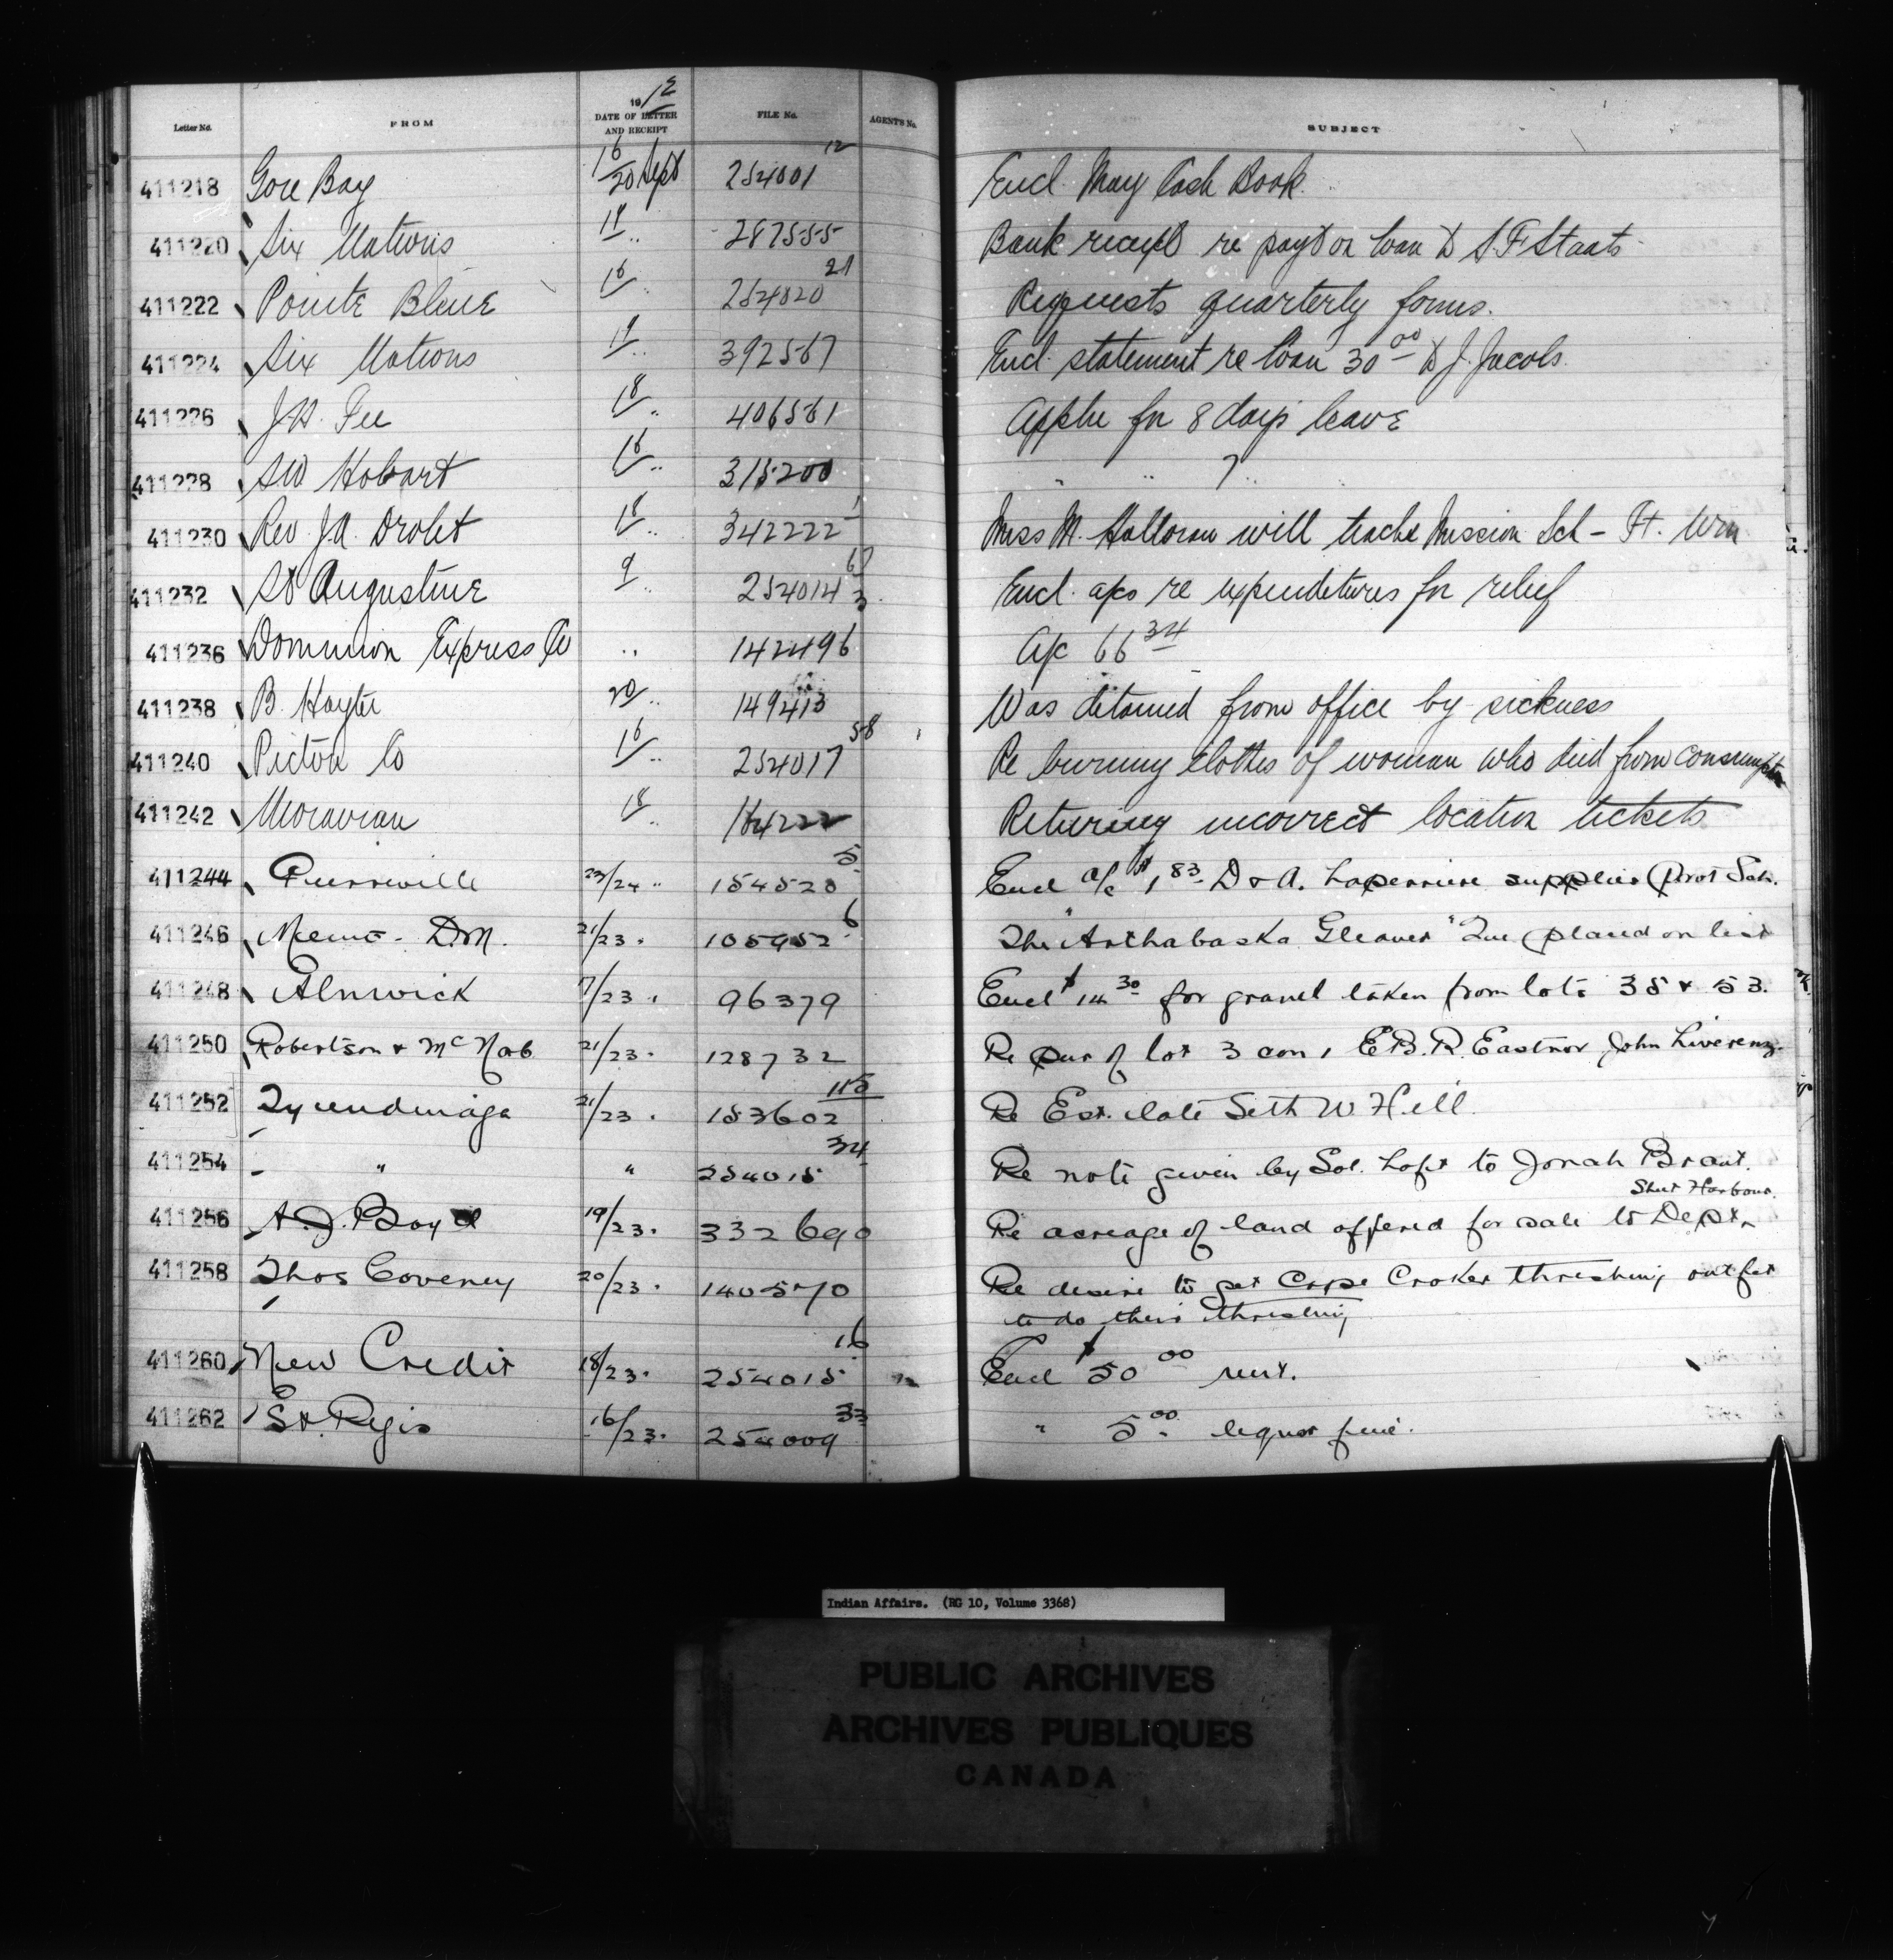 Letter No. FROM 1912 DATE OF LETTER AND RECEIPT FILE No. AGENTS No. SUBJECT
411218 Gore Bay 16/20 Sept 254001 12 Encl. May Cash Book
411220 Six Nations 18/ .. 287555 Bank receipt re payt on loan to S. F. Staats
411222 Pointe Bleue 16/ .. 254020 21 Requests quarterly forms.
411224 Six Nations 19/ .. 392567 Encl. statement re loan 30 00 to J. Jacobs.
411226 J.H. Fee 18/ .. 406561 Appln for 8 days leave
411228 SW Hobart 16/ .. 315200 " " 7 " "
411230 Rev. J.A. Drolet 18/ .. 342222 1 Miss M. Halloran will teach Mission Sch - Ft. Wm
411232 St Augustine 9 .. 254014 67 3 Encl. a/cs re expenditures for relief
411236 Dominion Express Co .. 142496 A/c 66 34
411238 B. Hayter 20/ .. 149413 Was detained from office by sickness
411240 Pictou Co 16/ .. 254017 58 Re burning clothes of woman who died from consumptn
411242 Moravian 18/ .. 164222 Returning incorrect location tickets
411244 Pierreville 23/24 " 154528 5 Encl a/c $1 83 D & A. Laperriere supplies Prot Sch.
411246 Memo - D.M. 21/23 . 105952 6 The "Arthabaska Gleaner" Que placed on list
411248 Alnwick 7/23 . 96379 Encl $14 30 for gravel taken from lots 35 & 53.
411250 Robertson & McNab 21/23 . 128732 Re pur of lot 3 con 1 E.B.R. Eastnor John
411252 Tyendinaga 21/23 . 153602 115 Re Est. late Seth W Hill.
411254 " " 254015 34 Re note given by Sol. Loft to Jonah Brant.
Sheet Harbour.
411256 A.J. Boyd 19/23 . 332690 Re acreage of land offered for sale to Dept.
411258 Thos Coveney 20/23 . 140570 Re desire to get Cape Croker threshing outfit
to do their threshing
411260 New Credit 18/23 . 254015 16 Encl $50 00 rent.
411262 St. Regis 16/23 . 254009 33 " 5 00 liquor fine.
Indian Affairs. (RG 10, Volume 3368)
PUBLIC ARCHIVES
ARCHIVES PUBLIQUES
CANADA